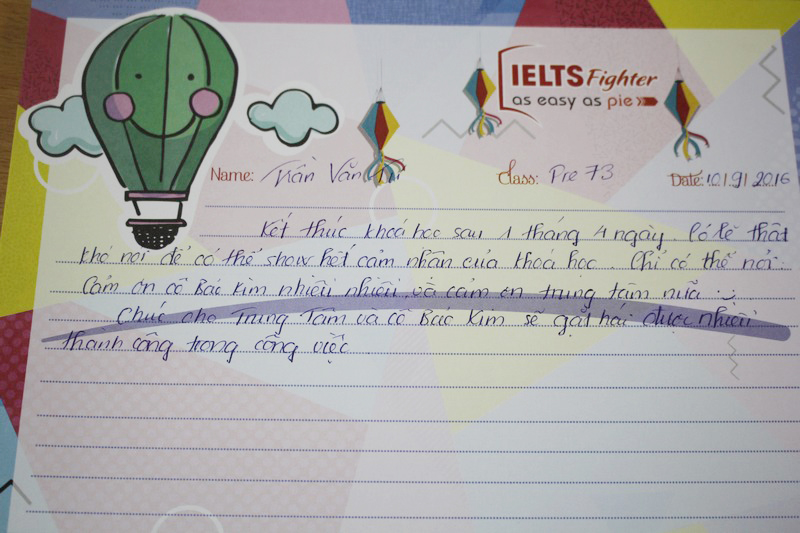 IELTS Fighter
as easy as pie
Name: Trần Văn
Class: Pre 73
Date: 10/9/2016
Kết thúc khoá học sau 1 tháng 4 ngày. Có lẽ thật
khó nói để có thể show hết cảm nhận của khoá học. Chỉ có thể nói:
Cảm ơn cô Bạc Kim nhiều nhiều và cảm ơn trung tâm nữa :)
Chúc cho Trung Tâm và cô Bạc Kim sẽ gặt hái được nhiều
thành công trong công việc.